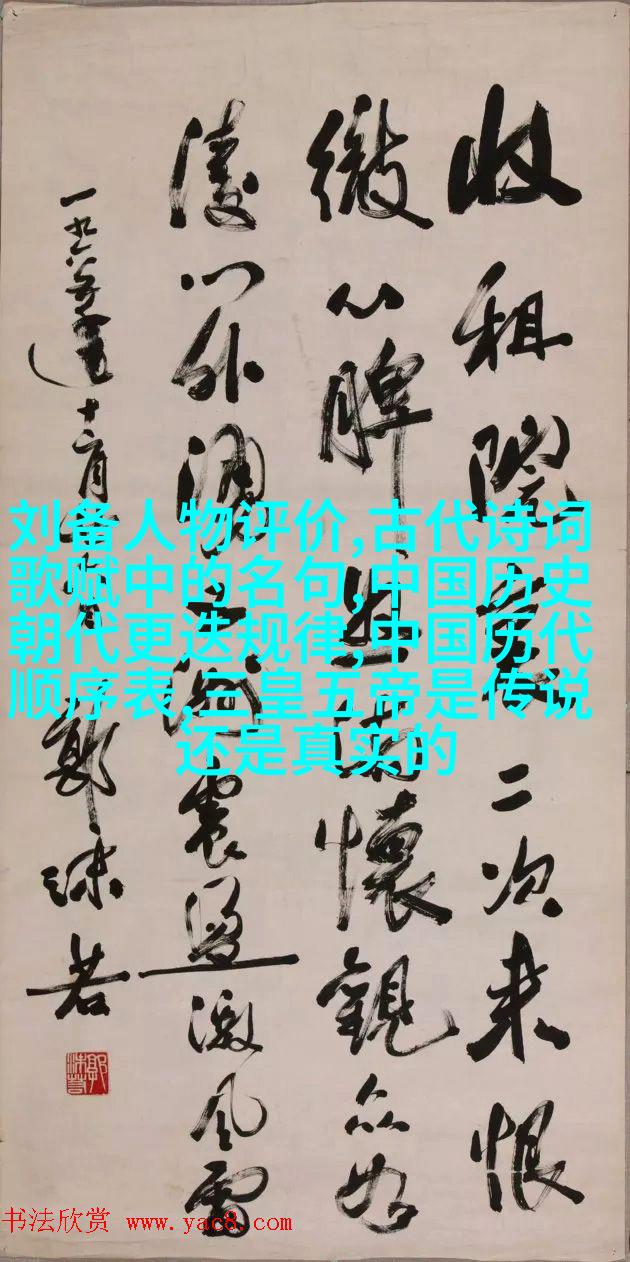 收租院 二次来恨
心脾 懷觀众如
门外 震盪激风雷
一九六 十二月
郭沫若
刘备人物评价,古代诗词
歌赋中的名句,中国历史
朝代更迭规律,中国历代
顺序表,三皇五帝是传说
还是真实的
郭沫若
书法欣赏 www.yac8.com